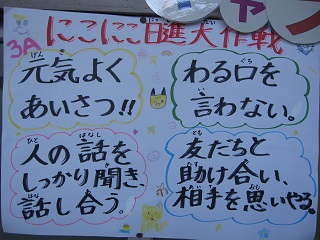 ャン
3A にこにこ日進大作戦
元気よく
あいさつ!!
わる口を
言わない。
人の話を
しっかり聞き、
話し合う。
友だちと
助け合い、
相手を思いやる。